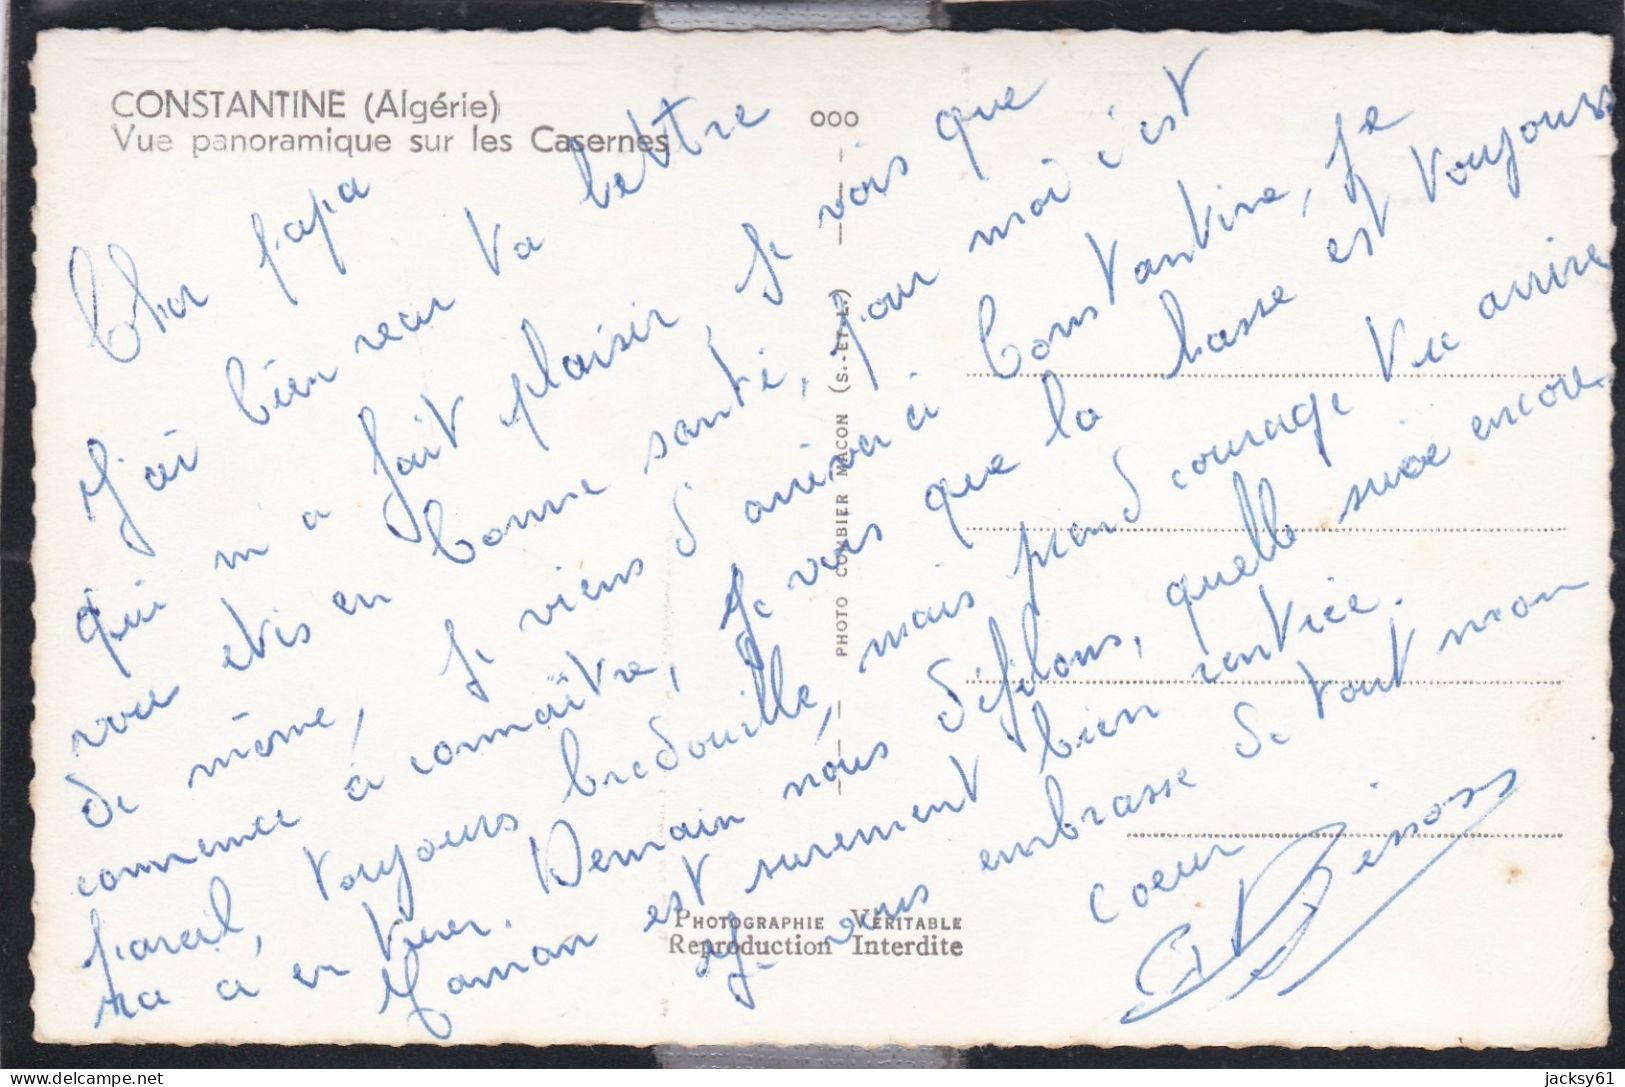 CONSTANTINE (Algérie)
Vue panoramique sur les Casernes
ooo
PHOTO COMBIER MACON (S.-ET-L.)
PHOTOGRAPHIE VÉRITABLE
Reproduction Interdite
Cher papa
J'ai bien reçu ta lettre
qui m'a fait plaisir, Je vois que
vous etis en bonne santé, pour moi c'est
de même, Je viens d'arriver à Constantine, Je
commence à connaître, Je vois que la chasse est toujours
pareil, toujours bredouille, mais prend courage tu arrive
ra à en tuer. Demain nous défilons, quelle suée encore
Maman est surement bien rentrée.
Je vous embrasse de tout mon
coeur
jacksy61